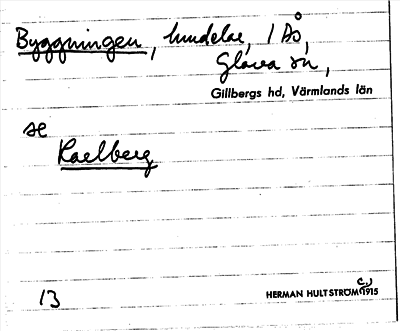 Byggningen, hmdelar, i Ås,
Glava sn,
Gillbergs hd, Värmlands län
se
Kaelberg
13
HERMAN HULTSTRÖM c.1915